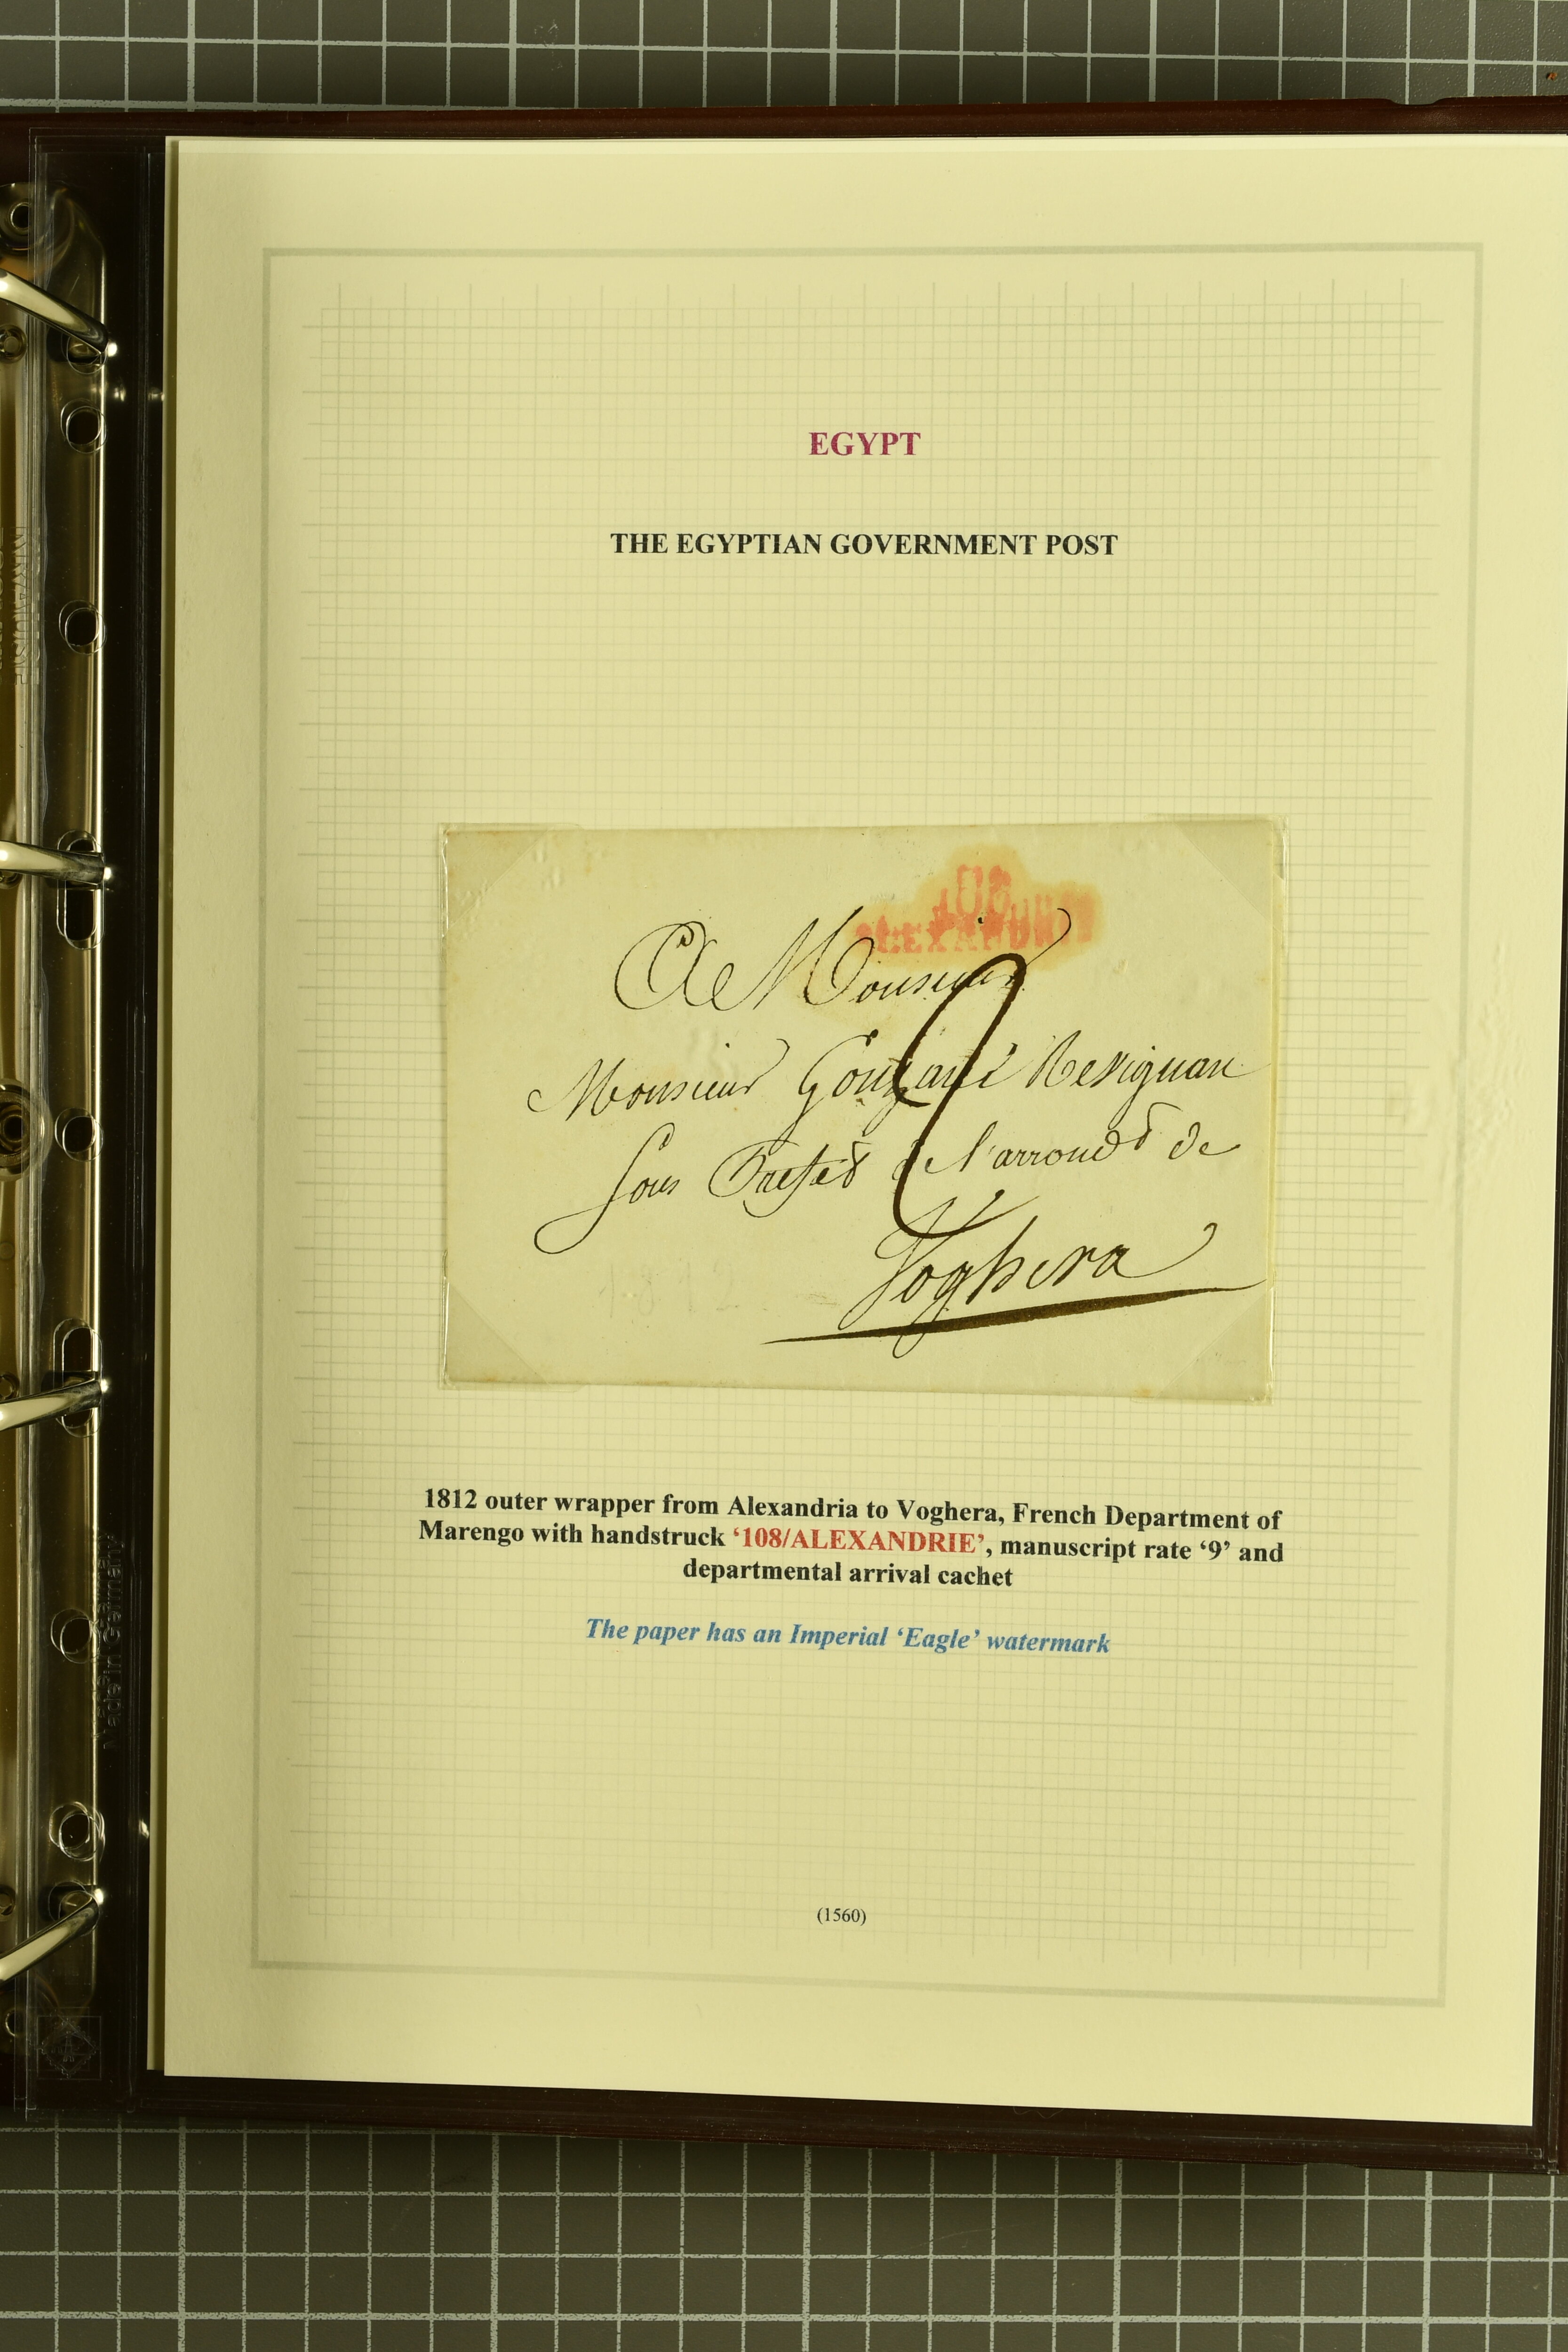 EGYPT
THE EGYPTIAN GOVERNMENT POST
108
ALEXANDRIE
A Monsieur
Monsieur
Sous Préfet de l'arrondt de
Voghera
1812
1812 outer wrapper from Alexandria to Voghera, French Department of
Marengo with handstruck ‘108/ALEXANDRIE’, manuscript rate ‘9’ and
departmental arrival cachet
The paper has an Imperial ‘Eagle’ watermark
(1560)
Made in Germany